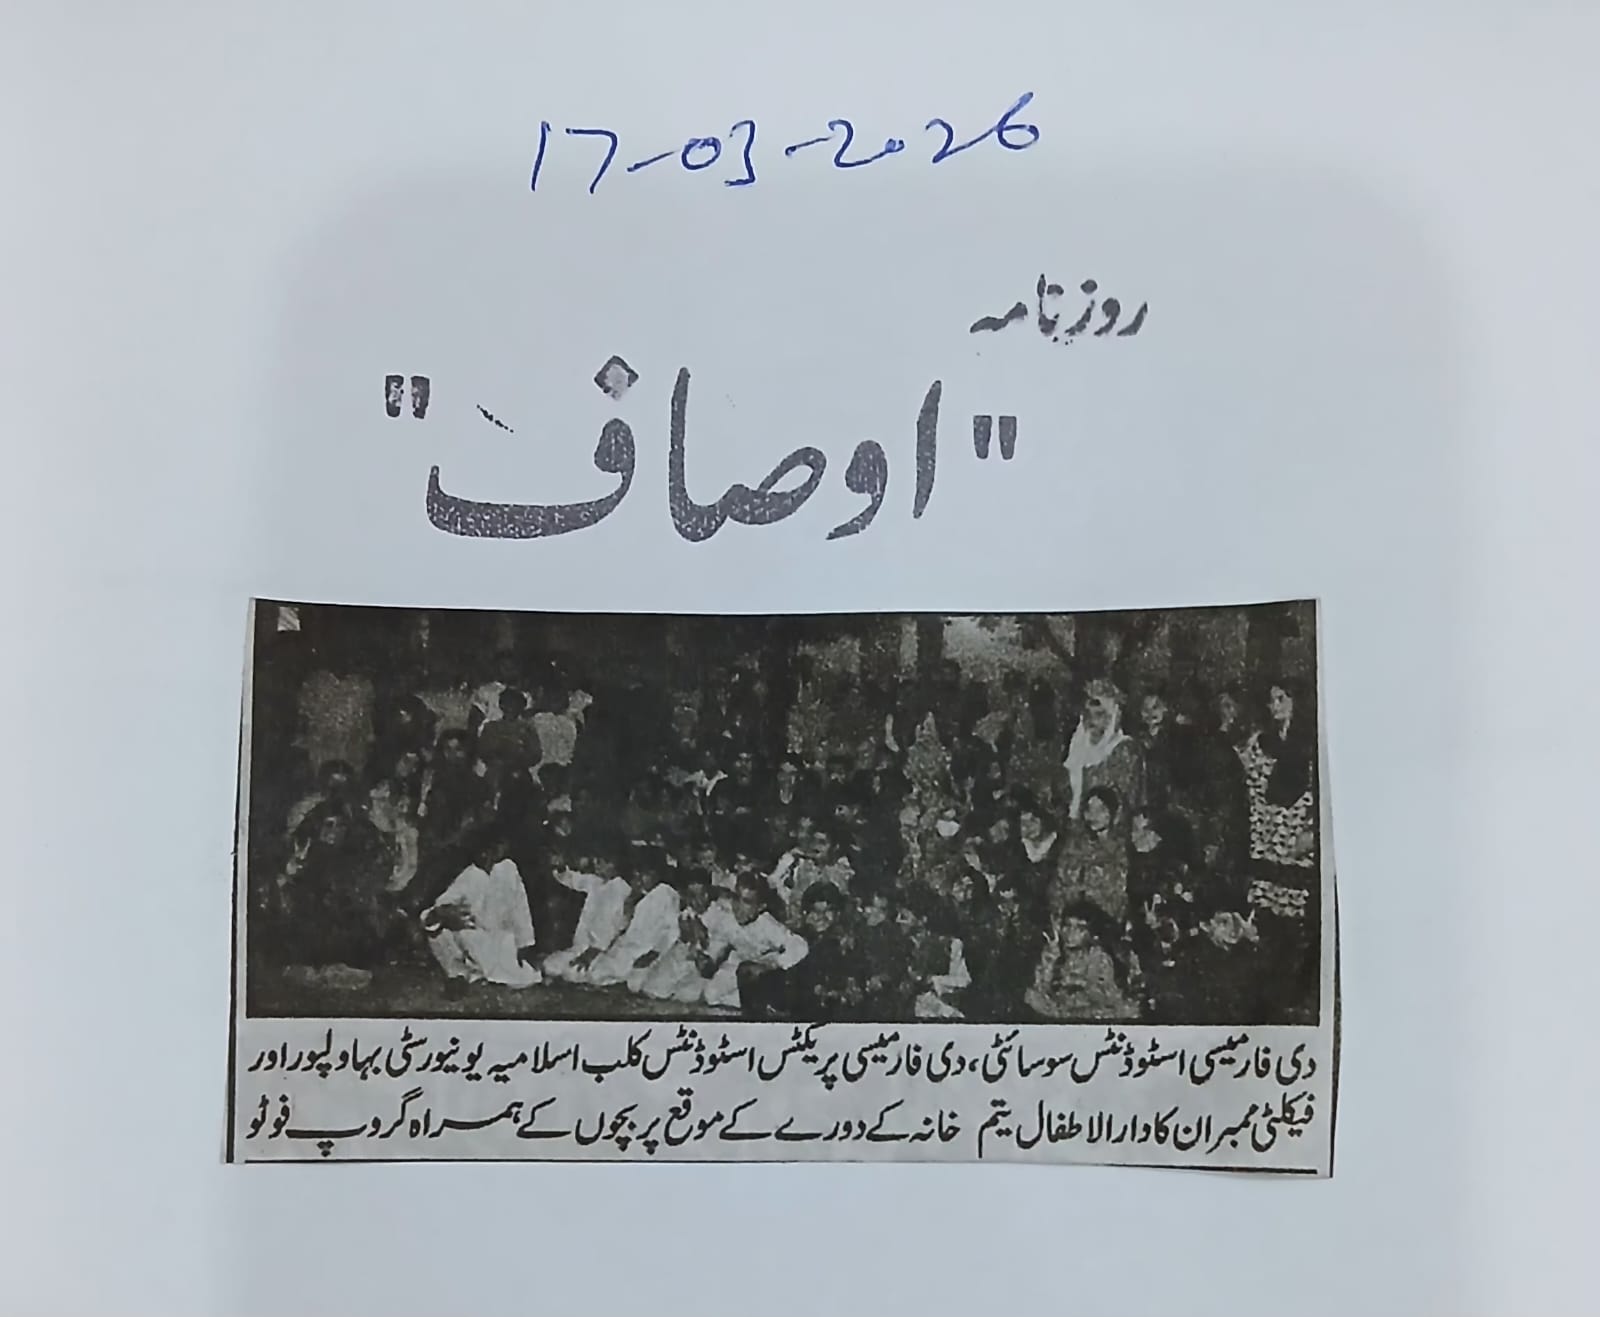 17-03-2026
روزنامہ
"اوصاف"
دی فارمیسی اسٹوڈنٹس سوسائٹی، دی فارمیسی پریکٹس اسٹوڈنٹس کلب اسلامیہ یونیورسٹی بہاولپور اور
فیکلٹی ممبران کا دارالاطفال یتیم خانہ کے دورے کے موقع پر بچوں کے ہمراہ گروپ فوٹو